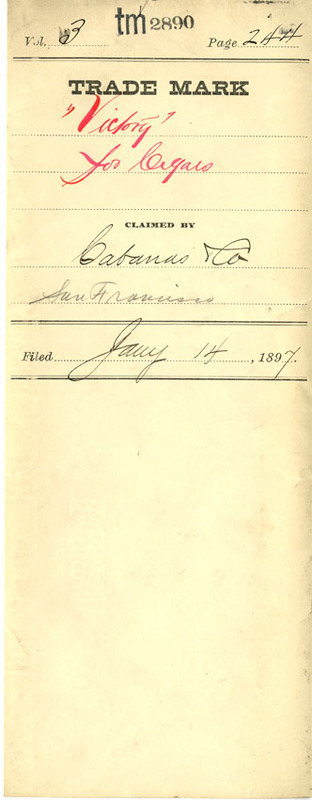 tm 2890
Vol. 3 Page 244
TRADE MARK
"Victory"
for Cigars
CLAIMED BY
Cabanas & Co
San Francisco
Filed Jany 14, 1897.